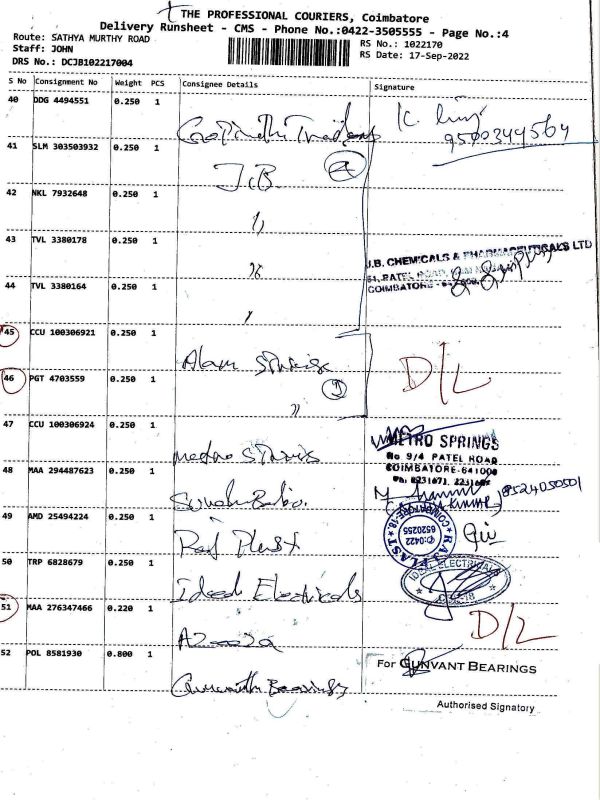 THE PROFESSIONAL COURIERS, Coimbatore
Delivery Runsheet - CMS - Phone No.:0422-3505555 - Page No.:4
Route: SATHYA MURTHY ROAD
Staff: JOHN
DRS No.: DCJB102217004
RS No.: 1022170
RS Date: 17-Sep-2022
S No Consignment No Weight PCS Consignee Details Signature
40 DDG 4494551 0.250 1
9500344564
41 SLM 303503932 0.250 1 J.B.
42 NKL 7932648 0.250 1 "
43 TVL 3380178 0.250 1 "
J.B. CHEMICALS & PHARMACEUTICALS LTD
51, PATEL ROAD,
COIMBATORE -
44 TVL 3380164 0.250 1 "
45 CCU 100306921 0.250 1 Alam Springs D/L
46 PGT 4703559 0.250 1 "
47 CCU 100306924 0.250 1 Metro Springs
METRO SPRINGS
No 9/4 PATEL ROAD
COIMBATORE-641009
Ph: 8231671, 2231685
48 MAA 294487623 0.250 1 Suresh Babu.
8524050501
49 AMD 25494224 0.250 1 Raj Plast
RAJ PLAST
COIMBATORE-18.
✆:0422
8520255
50 TRP 6828679 0.250 1 Ideal Electricals
IDEAL ELECTRICALS
51 MAA 276347466 0.220 1 D/L
52 POL 8581930 0.800 1 Gunvanth Bearings
For GUNVANT BEARINGS
Authorised Signatory